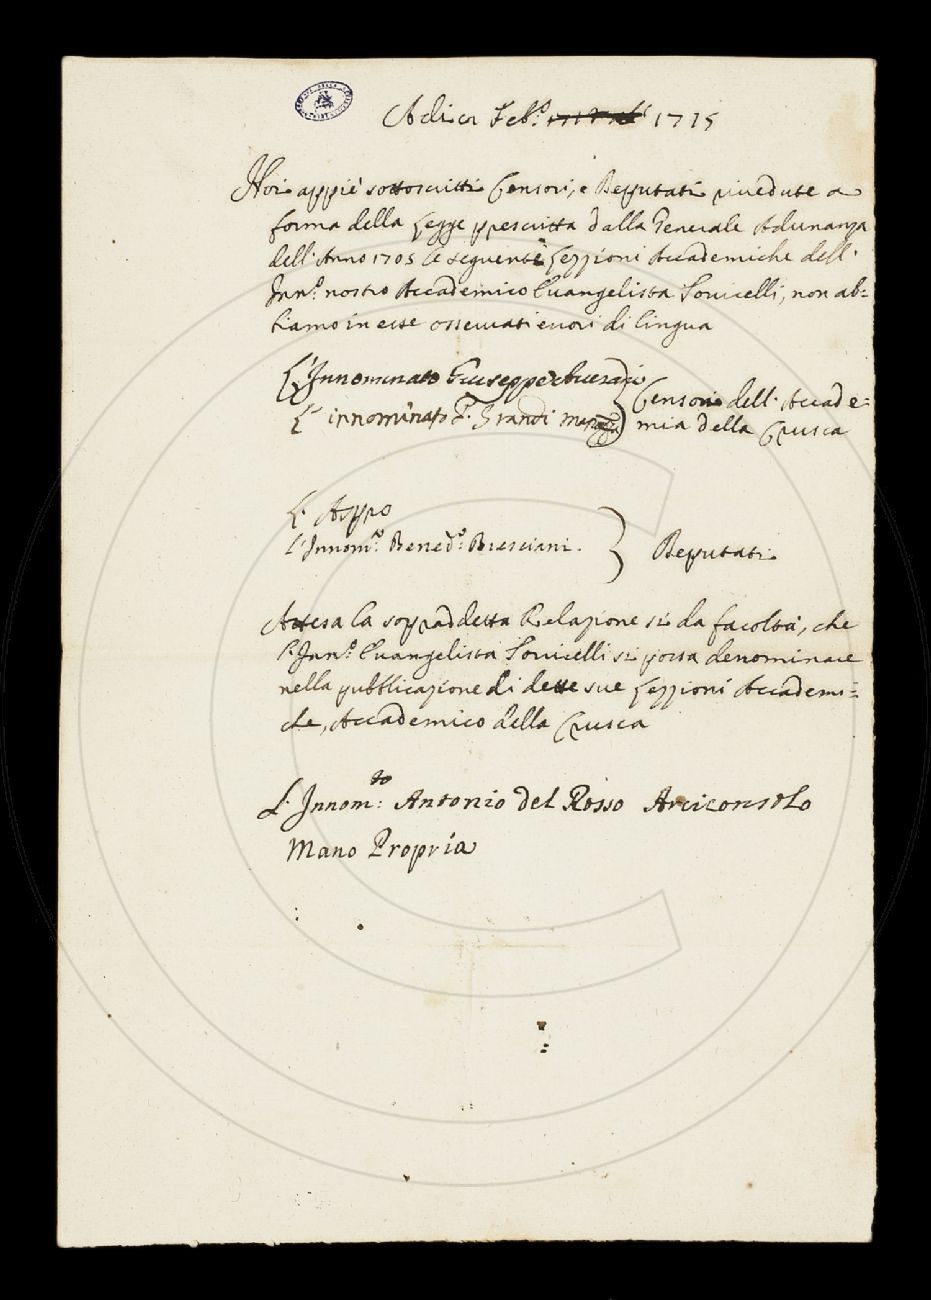 Adi Feb.º 1715
Noi appiè sottoscritti Censori, e Deputati rivedute a
forma della Legge prescritta dalla Generale Adunanza
dell'Anno 1705 le seguenti Lezzioni Accademiche dell'
Inn.º nostro Accademico Evangelista Torricelli, non ab=
biamo in esse osservati errori di lingua
L'Innominato Giuseppe Averani
L' innominato F. Grandi
Censori dell'Accade=
mia della Crusca
L'Aspro
L'Innom.º Bened.º Bresciani.
Deputati
Attesa la sopraddetta Relazione si da facoltà, che
l'Inn.º Evangelista Torricelli si possa denominare
nella pubblicazione di dette sue Lezzioni Accademi=
che, Accademico della Crusca
L'Innom.to Antonio del Rosso Arciconsolo
Mano Propria